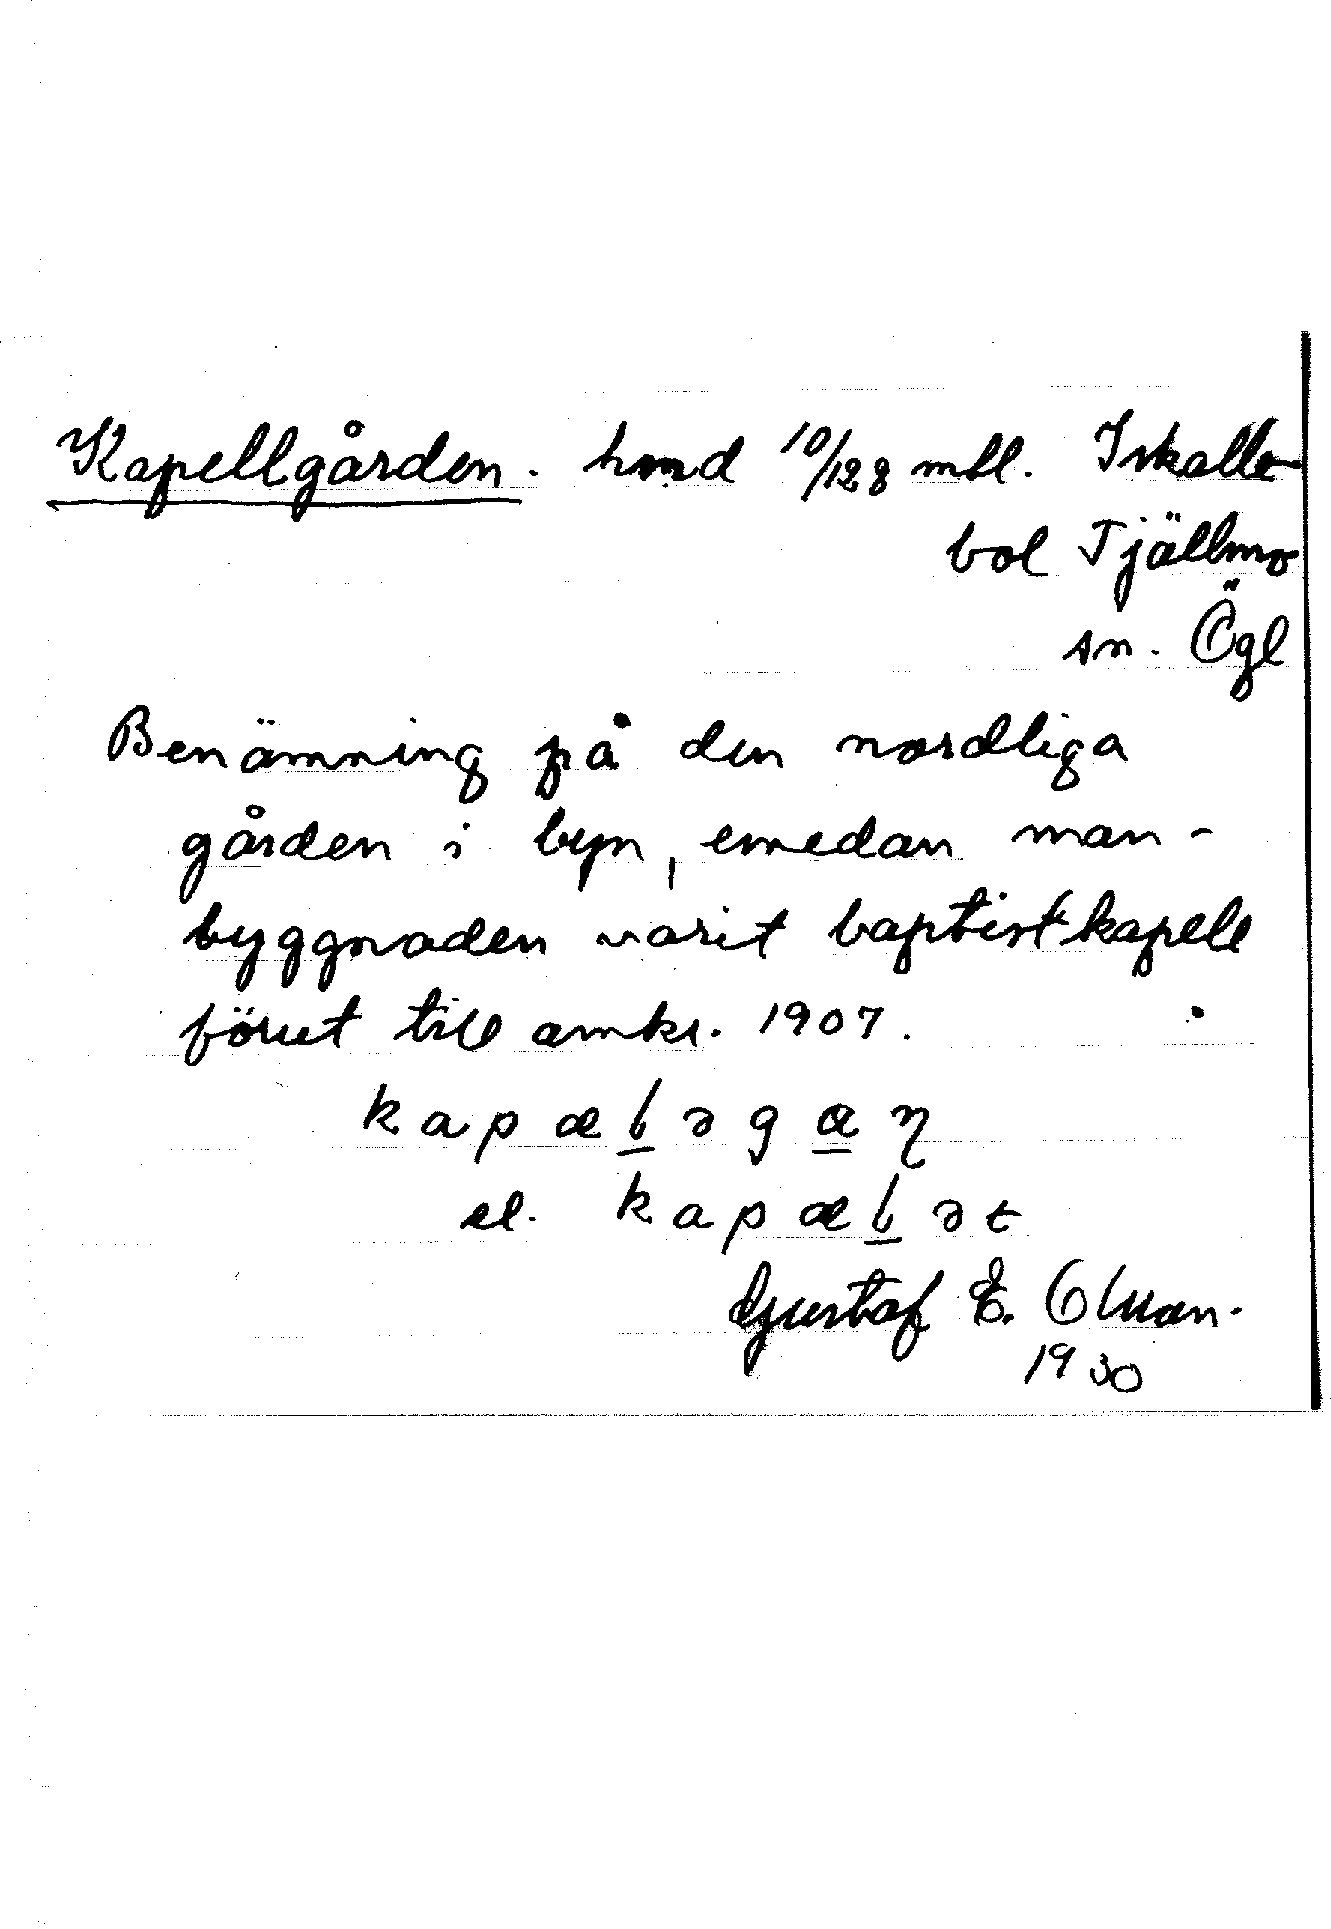 Kapellgården. hmd 10/128 mtl. Iskalle-
bol Tjällmo
sn. Ögl
Benämning på den nordliga
gården i byn, emedan man-
byggnaden varit baptistkapell
förut till omkr. 1907.
k a p æ ɩ ə g ɑ η
el. k a p æ ɩ ə t
Gustaf E. Olsson.
1930